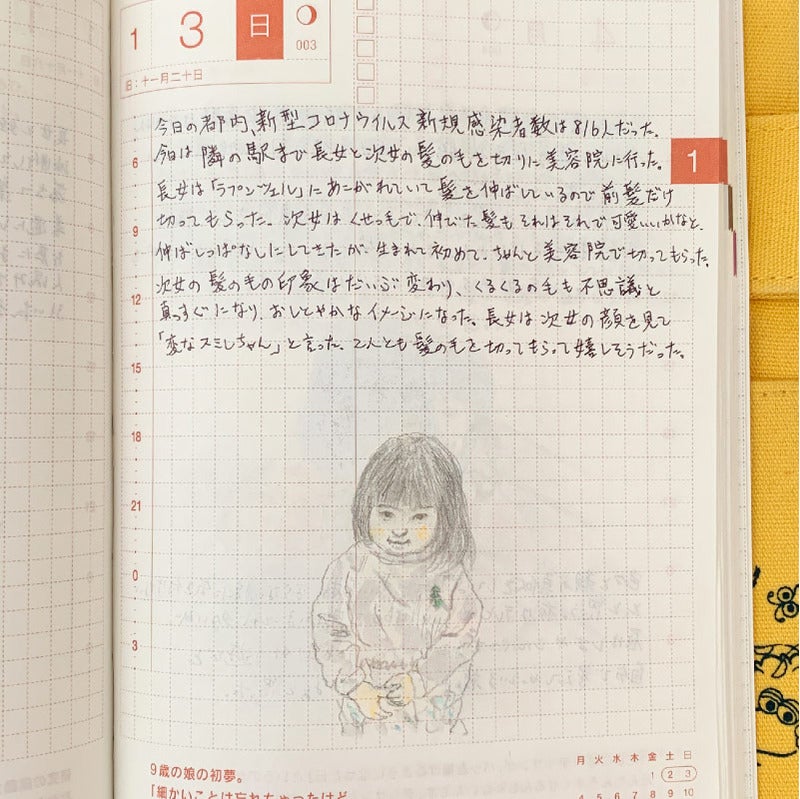 1 3 日
003
旧:十一月二十日
今日の都内、新型コロナウイルス新規感染者数は816人だった。
今日は隣の駅まで長女と次女の髪の毛を切りに美容院に行った。
長女は「ラプンツェル」にあこがれていて髪を伸ばしているので前髪だけ
切ってもらった。次女はくせっ毛で、伸びた髪もそれはそれで可愛いいかなと、
伸ばしっぱなしにしてきたが、生まれて初めて、ちゃんと美容院で切ってもらった。
次女の髪の毛の印象はだいぶ変わり、くるくるの毛も不思議と
真っすぐになり、おしとやかなイメージになった。長女は次女の顔を見て
「変なスミレちゃん」と言った。2人とも髪の毛を切ってもらって嬉しそうだった。
1
6
9
12
15
18
21
0
3
9歳の娘の初夢。
「細かいことは忘れちゃったけど、
月 火 水 木 金 土 日
1 2 3
4 5 6 7 8 9 10